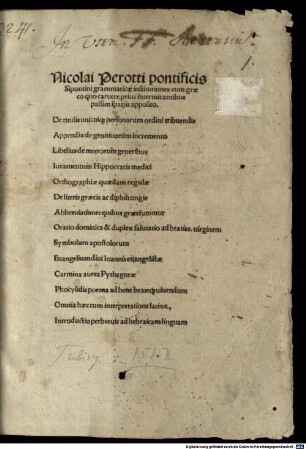 In Vsum FF.
1.
Nicolai Perotti pontificis
Sipontini grammaticæ institutiones cum græ
co quo caruere prius intermicantibus
passim spatijs apposito.
De titulis unicuiq; personarum ordini tribuendis
Appendix de genitiuorum incremento
Libellus de metrorum generibus
Iuramentum Hippocratis medici
Orthographiæ quædam regulæ
De literis græcis ac diphthongis
Abbreuiationes quibus græci utuntur
Oratio dominica & duplex salutatio ad beatiss. uirginem
Symbolum apostolorum
Euangelium diui Ioannis euangelistæ
Carmina aurea Pythagoræ
Phocylidis poema ad bene beateq; uiuendum
Omnia hæc cum interpretatione latina,
Introductio perbreuis ad hebraicam linguam
Tubing. 1512